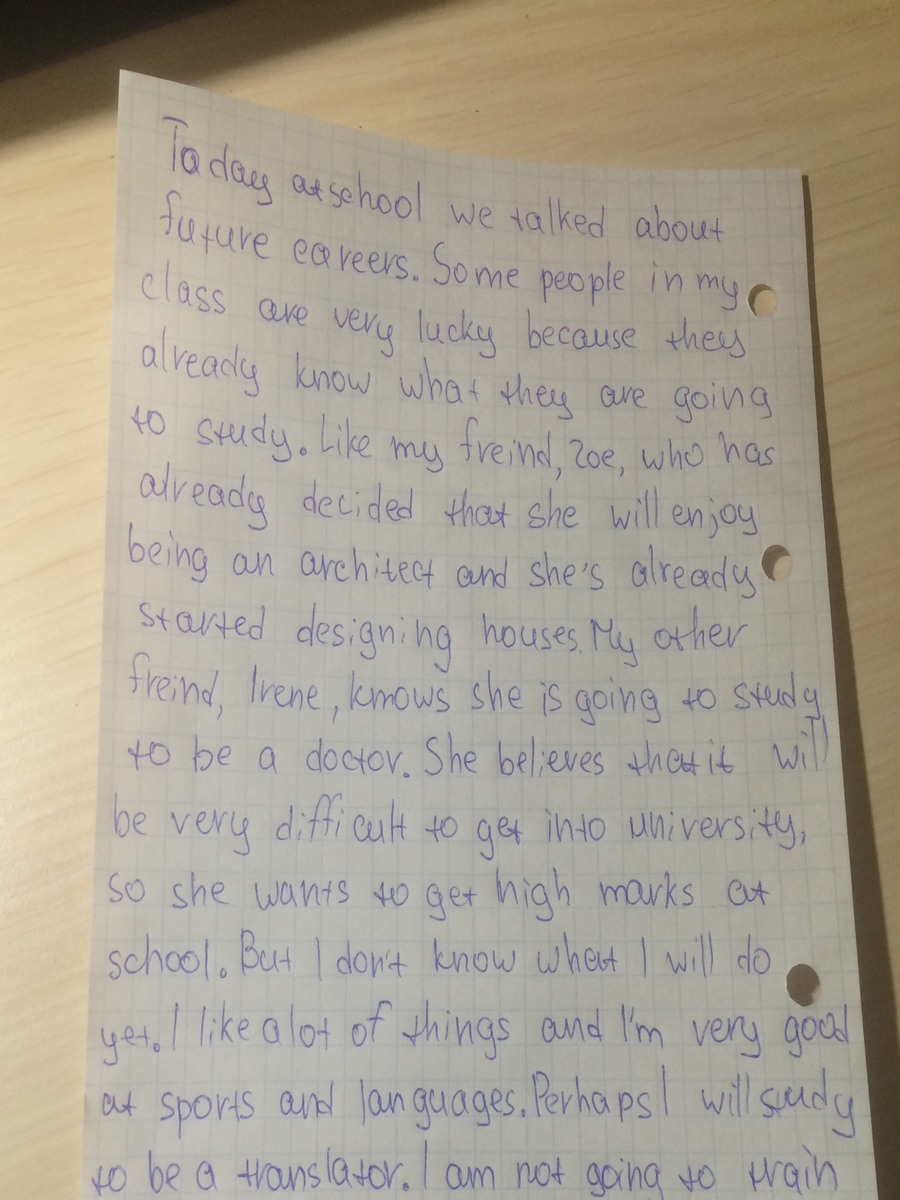 Today at school we talked about
future careers. Some people in my
class are very lucky because they
already know what they are going
to study. Like my freind, Zoe, who has
already decided that she will enjoy
being an architect and she's already
started designing houses. My other
freind, Irene, knows she is going to study
to be a doctor. She believes that it will
be very difficult to get into university,
so she wants to get high marks at
school. But I don't know what I will do
yet. I like a lot of things and I'm very good
at sports and languages. Perhaps I will study
to be a translator. I am not going to train